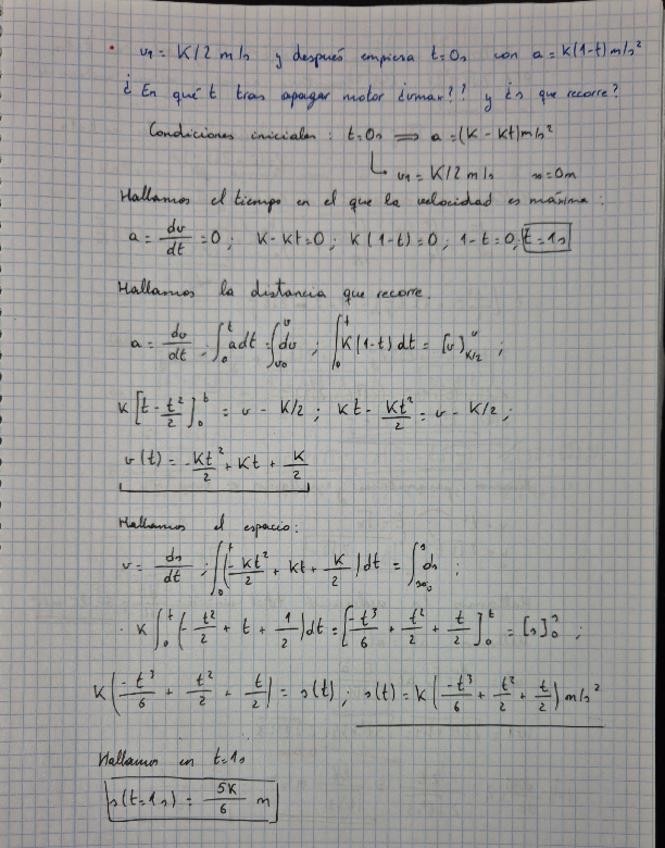 • v₁ = K/2 m/s y después empieza t=0s con a = K(1-t) m/s²
¿ En qué t tras apagar motor ¿vmax?? y ¿s que recorre?
Condiciones iniciales : t=0s ⟹ a = (K - Kt) m/s²
v₁ = K/2 m/s s=0m
Hallamos el tiempo en el que la velocidad es máxima :
a = dv/dt = 0 ; K - Kt = 0 ; K (1-t) = 0 ; 1 - t = 0 ; t = 1s
Hallamos la distancia que recorre.
a = dv/dt ; ∫₀ᵗ a dt = ∫_{v₀}^{v} dv ; ∫₀ᵗ K(1-t) dt = [v]_{K/2}^{v} ;
K [t - t²/2]₀ᵗ = v - K/2 ; Kt - Kt²/2 = v - K/2 ;
v(t) = -Kt²/2 + Kt + K/2
Hallamos el espacio :
v = ds/dt ; ∫₀ᵗ (-Kt²/2 + Kt + K/2) dt = ∫_{s₀}^{s} ds ;
· K ∫₀ᵗ (-t²/2 + t + 1/2) dt = [-t³/6 + t²/2 + t/2]₀ᵗ = [s]₀ˢ ;
K (-t³/6 + t²/2 + t/2) = s(t) ; s(t) = K (-t³/6 + t²/2 + t/2) m/s²
Hallamos en t=1s
s(t=1s) = 5K/6 m